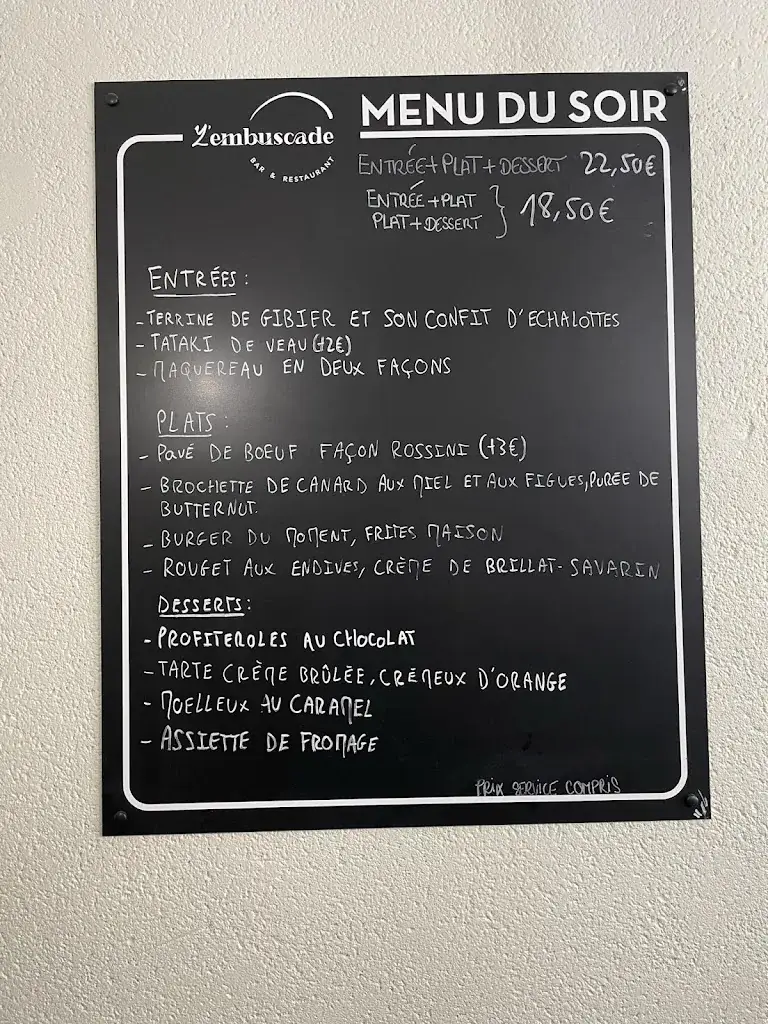 L'embuscade
BAR & RESTAURANT
MENU DU SOIR
ENTRÉE+PLAT+DESSERT 22,50€
ENTRÉE+PLAT
PLAT+DESSERT } 18,50€
ENTRÉES :
- TERRINE DE GIBIER ET SON CONFIT D'ECHALOTTES
- TATAKI DE VEAU (+2€)
- MAQUEREAU EN DEUX FAÇONS
PLATS :
- PAVÉ DE BOEUF FAÇON ROSSINI (+3€)
- BROCHETTE DE CANARD AUX MIEL ET AUX FIGUES, PUREE DE
BUTTERNUT.
- BURGER DU MOMENT, FRITES MAISON
- ROUGET AUX ENDIVES, CRÈME DE BRILLAT-SAVARIN
DESSERTS :
- PROFITEROLES AU CHOCOLAT
- TARTE CRÈME BRÛLÉE, CRÉMEUX D'ORANGE
- MOELLEUX AU CARAMEL
- ASSIETTE DE FROMAGE
PRIX SERVICE COMPRIS